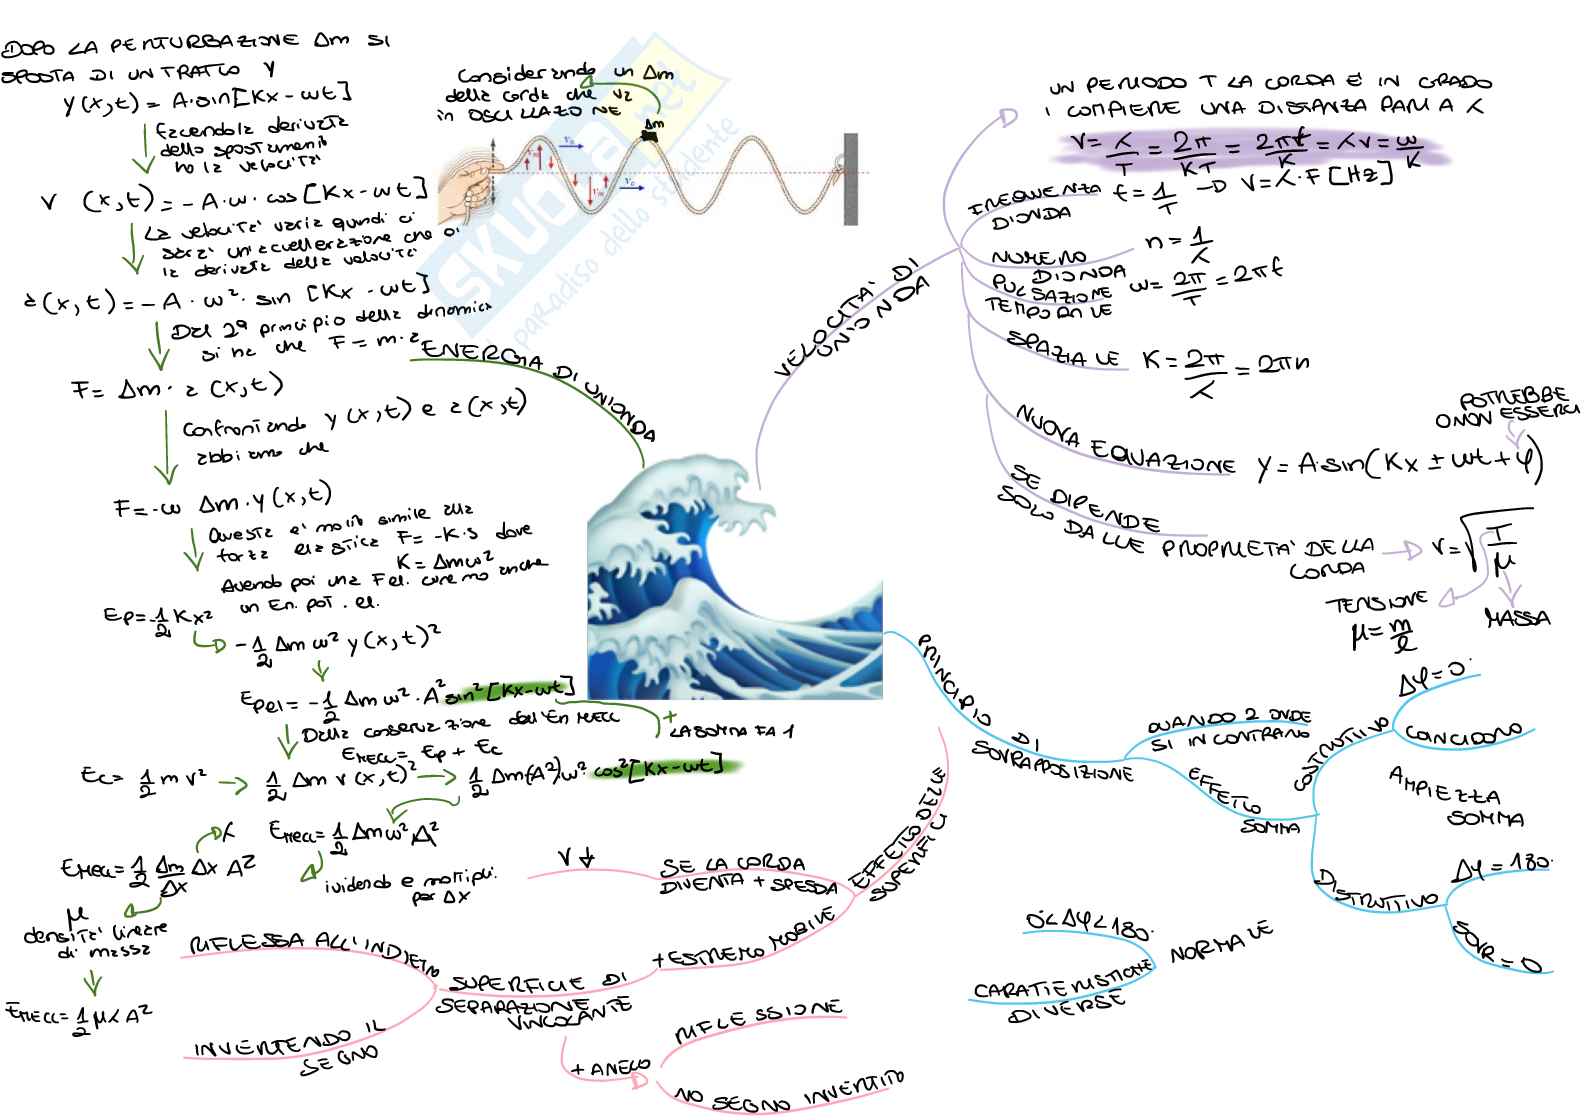 DOPO LA PERTURBAZIONE Δm SI
SPOSTA DI UN TRATTO Y
y(x,t) = A·sin[Kx - ωt]
facendo la derivata
dello spostamento
ho la velocità
v (x,t) = - A·ω·cos[Kx - ωt]
La velocità varia quindi ci
sarà un'accellerazione che è
la derivata della velocità
a(x,t) = - A · ω²· sin [Kx - ωt]
Dal 2° principio della dinamica
si ha che F = m·a
F = Δm · a (x,t)
Confrontando y(x,t) e a(x,t)
abbiamo che
F = -ω Δm·y(x,t)
Questa è molto simile alla
forza elastica F = -K·s dove
K = Δmω²
Avendo poi una F el. avremo anche
un En. pot. el.
Ep = -1/2 Kx²
-1/2 Δm ω² y(x,t)²
Epel = -1/2 Δm ω²·A² sin²[Kx-ωt]
Dalla conservazione dell'En MECC
+
LA SOMMA FA 1
EMECC = Ep + Ec
Ec = 1/2 m v² → 1/2 Δm v(x,t)² → 1/2 Δm(A²)ω² cos²[Kx-ωt]
λ
EMECC = 1/2 Δmω²A²
EMECC = 1/2 Δm/Δx Δx A²
ividendo e moltipli.
per Δx
μ
densità lineare
di massa
EMECC = 1/2 μλA²
Considerando un Δm
della corda che va
in OSCILLAZIONE
Δm
SKUOLA.net
paradiso dello studente
ENERGIA DI UN'ONDA
VELOCITÀ DI
UN'ONDA
UN PERIODO T LA CORDA È IN GRADO
I COMPIERE UNA DISTANZA PARI A λ
v = λ/T = 2π/KT = 2πf/K = λν = ω/K
FREQUENZA
D'ONDA
f = 1/T → V = λ·F [Hz]
NUMERO
D'ONDA
n = 1/λ
PULSAZIONE
TEMPORALE
ω = 2π/T = 2πf
SPAZIALE K = 2π/λ = 2πn
NUOVA EQUAZIONE y = A·sin(Kx ± ωt + φ)
POTREBBE
O NON ESSERCI
SE DIPENDE
SOLO DALLE PROPRIETÀ DELLA
CORDA
v = √T/μ
TENSIONE
μ = m/l
MASSA
PRINCIPIO DI
SOVRAPPOSIZIONE
QUANDO 2 ONDE
SI INCONTRANO
EFFETTO
SOMMA
COSTRUTTIVO
Δφ = 0°
COINCIDONO
AMPIEZZA
SOMMA
DISTRUTTIVO
Δφ = 180°
SOVR = 0
NORMALE
0° < Δφ < 180°
CARATTERISTICHE
DIVERSE
EFFETTO DELLE
SUPERFICI
SE LA CORDA
DIVENTA + SPESSA
V ↓
+ ESTREMO MOBILE
SUPERFICIE DI
SEPARAZIONE
VINCOLANTE
RIFLESSA ALL'INDIETRO
INVERTENDO IL
SEGNO
+ ANELLO
RIFLESSIONE
NO SEGNO INVERTITO